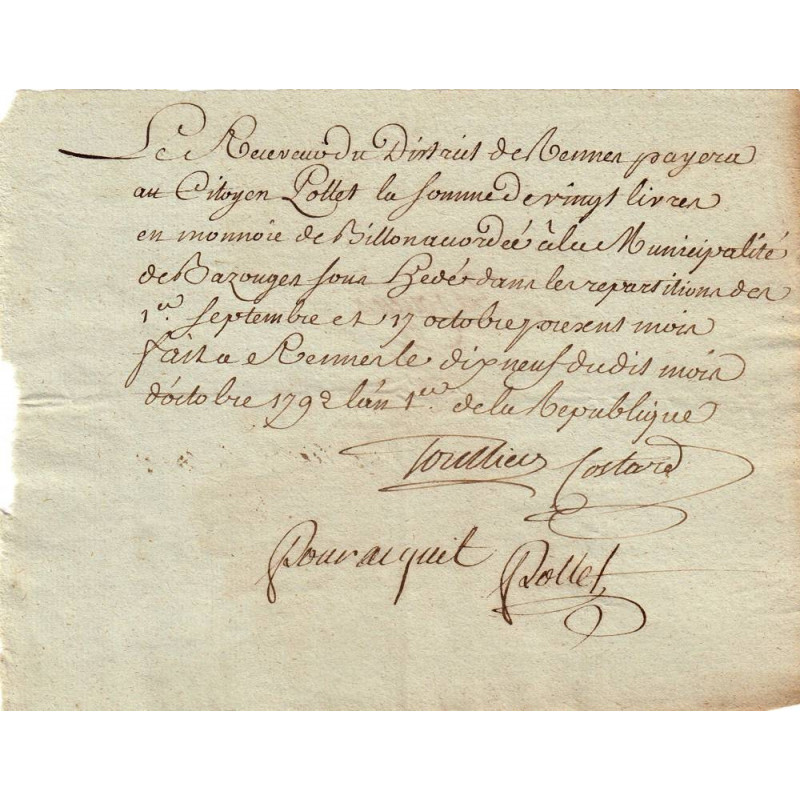 Le Receveur du District de Rennes payera
au Citoyen Pollet la somme de vingt livres
en monnoie de Billon accordée à la Municipalité
de Bazouges sous hedé dans les repartitions des
1er. septembre et 17 octobre present mois
fait a Rennes le dix neuf du dit mois
d'octobre 1792 l'an 1er. de la Republique
Toullier Costard
Pour acquit Pollet